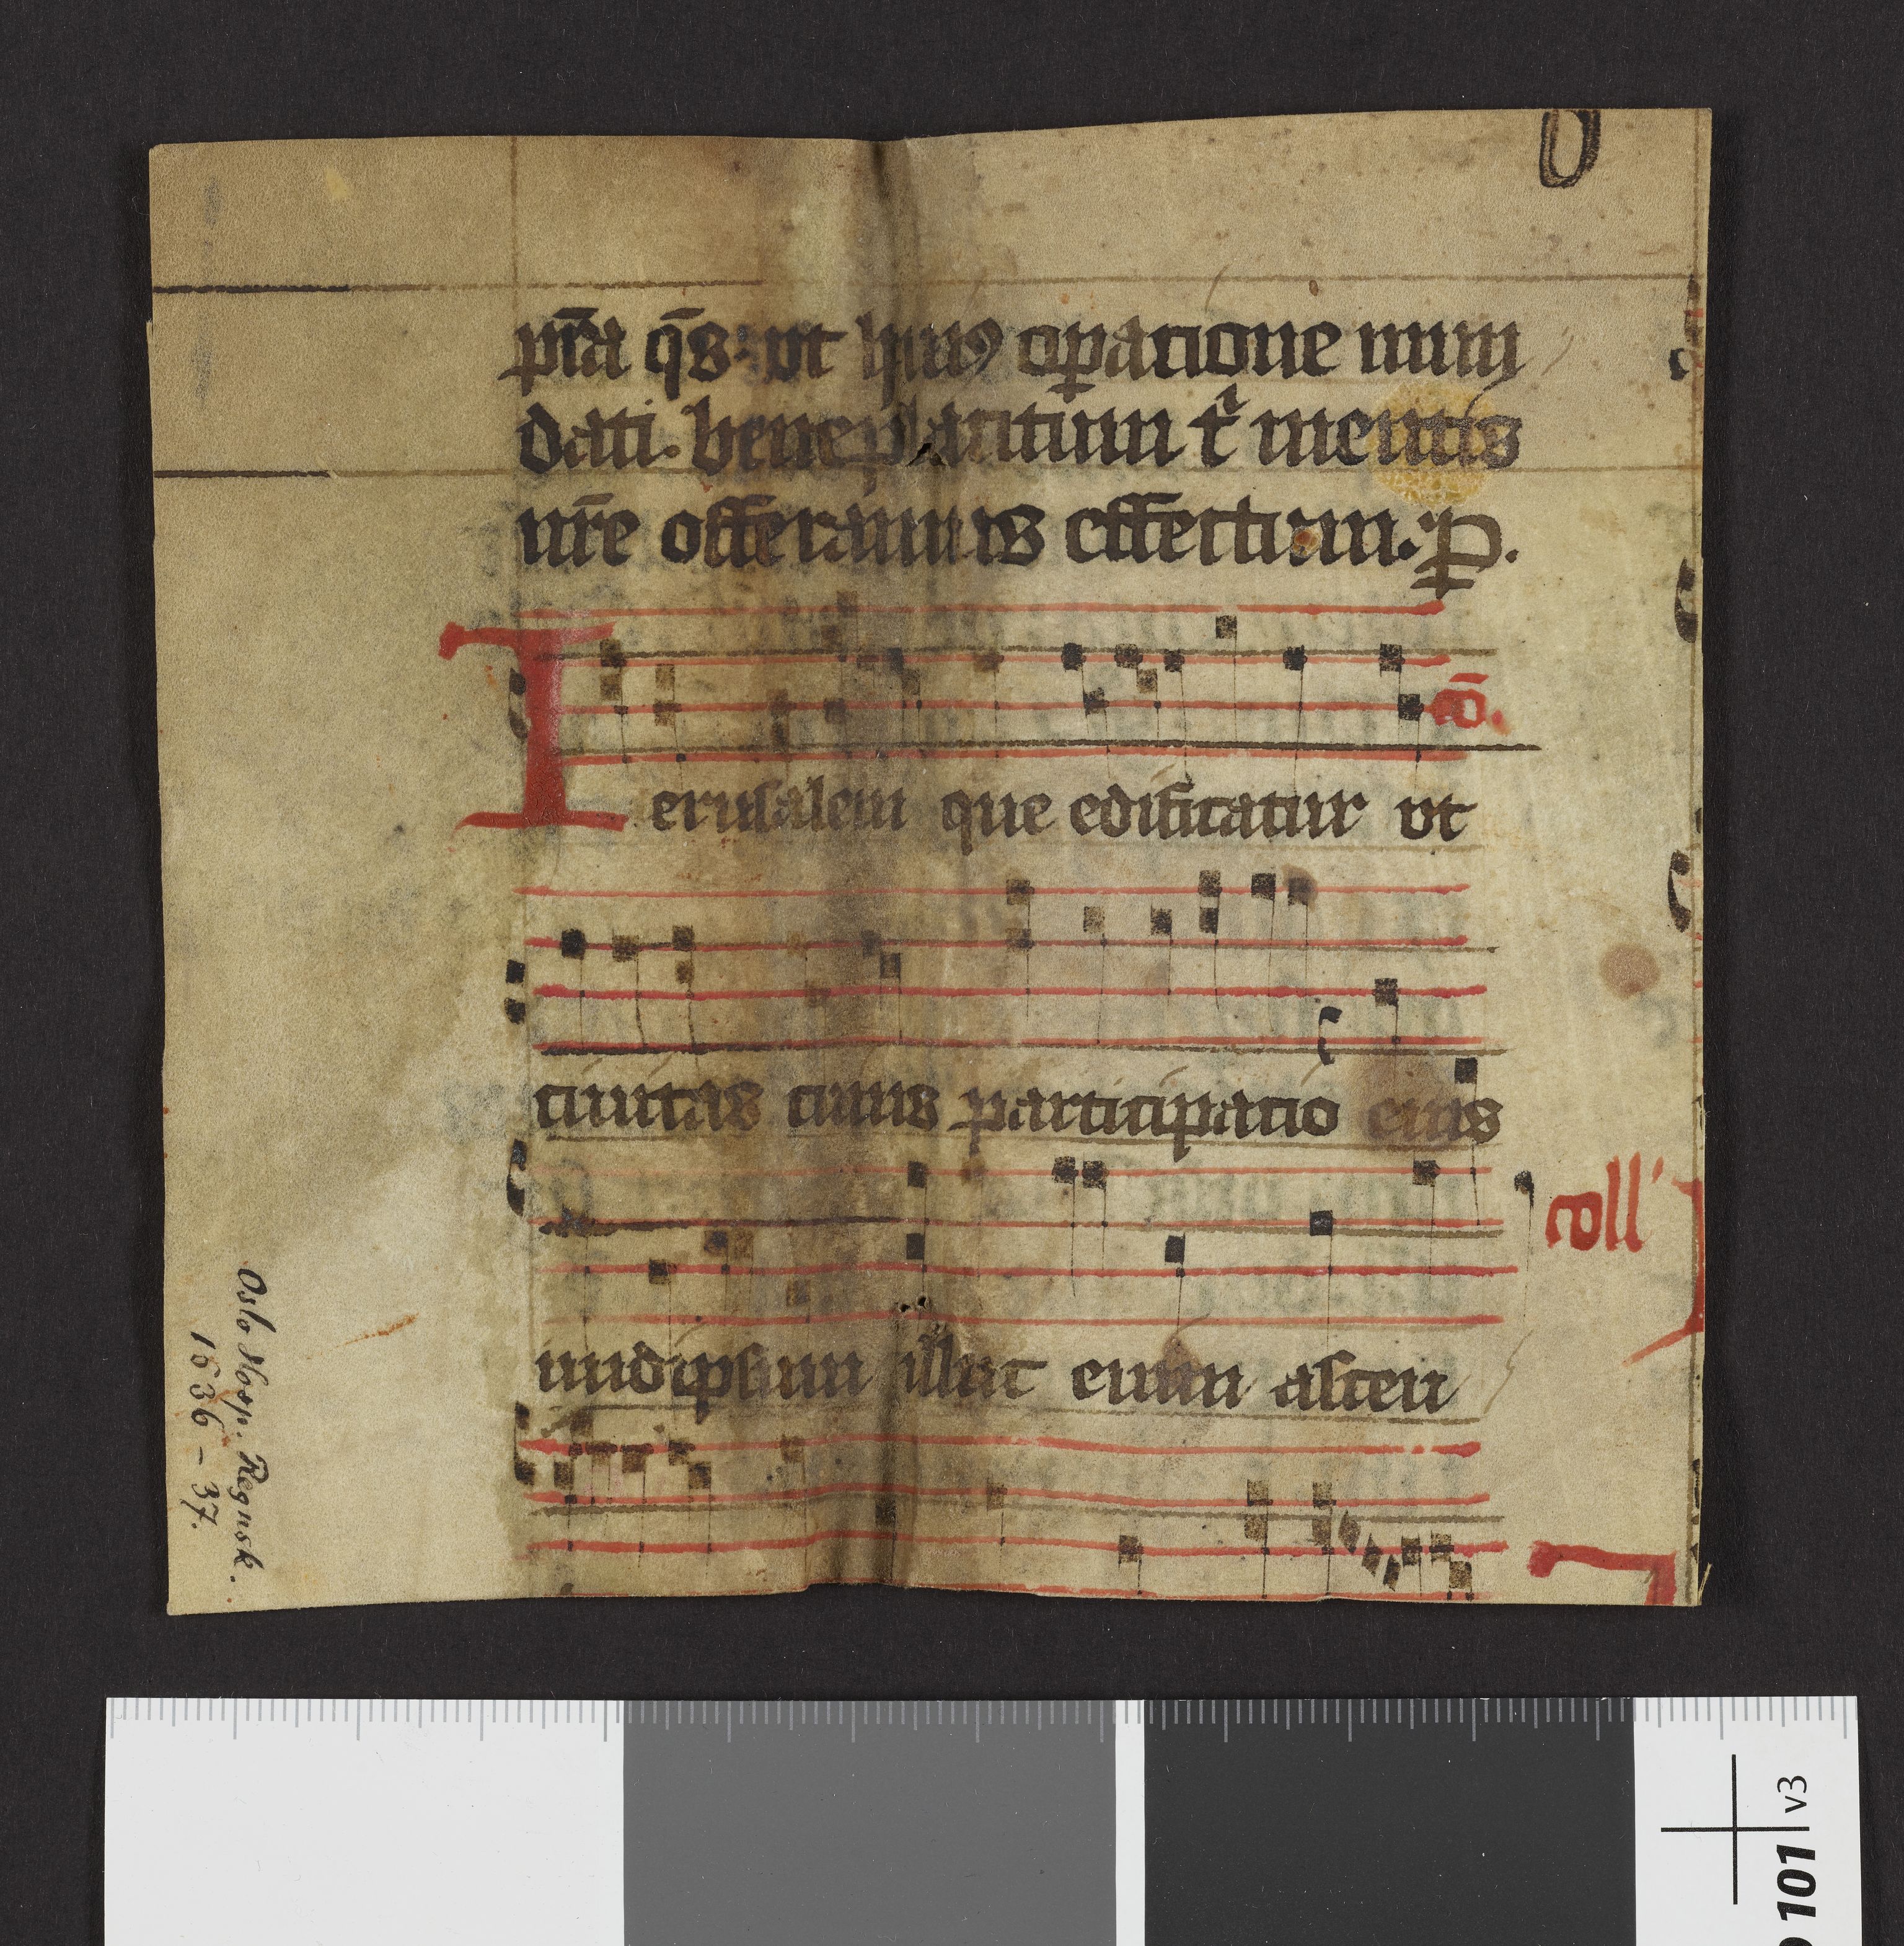 p̄ra q̄s: ut hui9 op̲acione mun
dati. beneplacitum t' mentis
nr̄e offeramus effectum. P.
cō.
Ierusalem que edificatur ut
ciuitas cuius participacio eius
in idipsum illuc enim ascen
coll'
Oslo Hosp. Regnsk.
1636 - 37.
101 v3